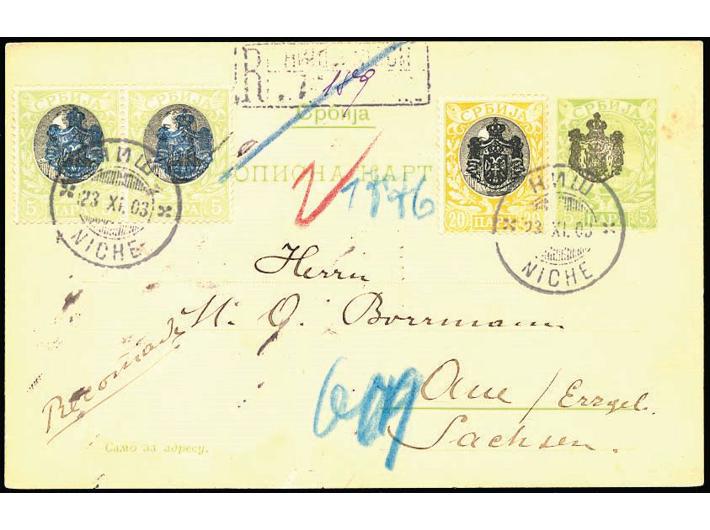 R
189
Србија
ОПИСНА КАРТ
СРБИЈА
СРБИЈА
5 ПАРА 5
СРБИЈА
20 ПАРА 20
СРБИЈА
5 ПАРА 5
НИШ
23 XI. 03
NICHE
НИШ
23 XI. 03
NICHE
1876
Herrn
Borrmann
609
Aue / Erzgeb.
Sachsen.
Само за адресу.